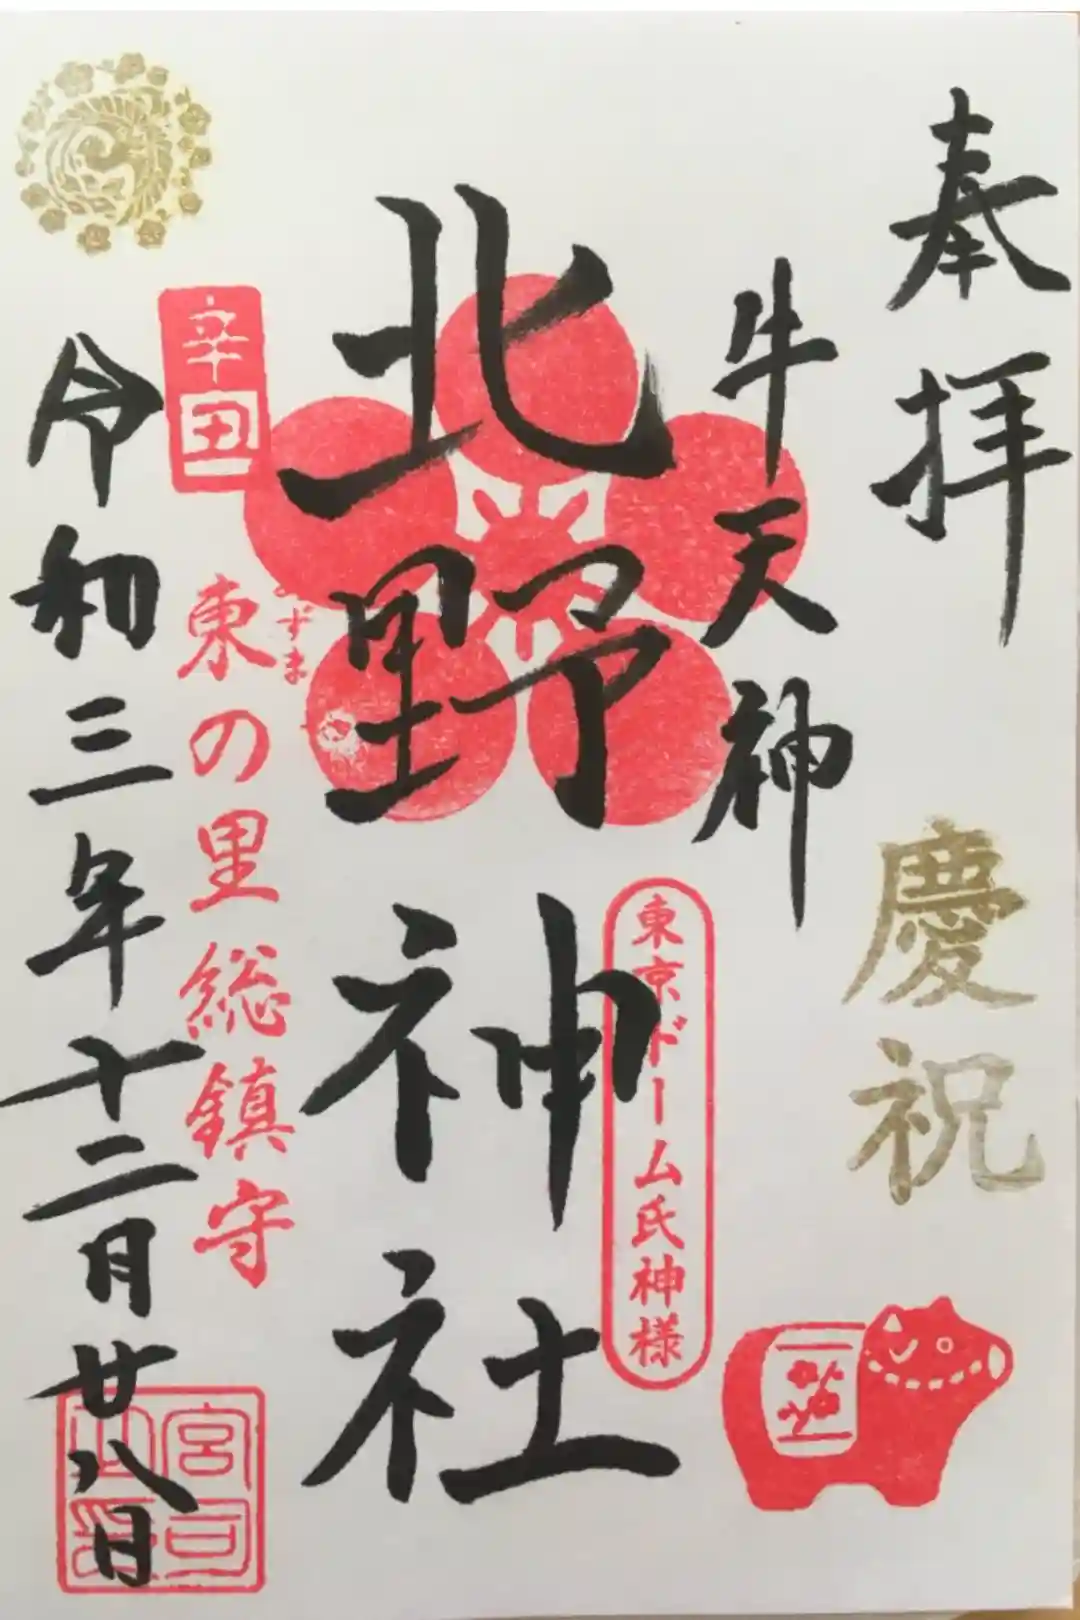 奉拝
慶祝
牛天神
東京ドーム氏神様
北野神社
東の里総鎮守
あずま
辛丑
令和三年十二月廿八日
宮司之印